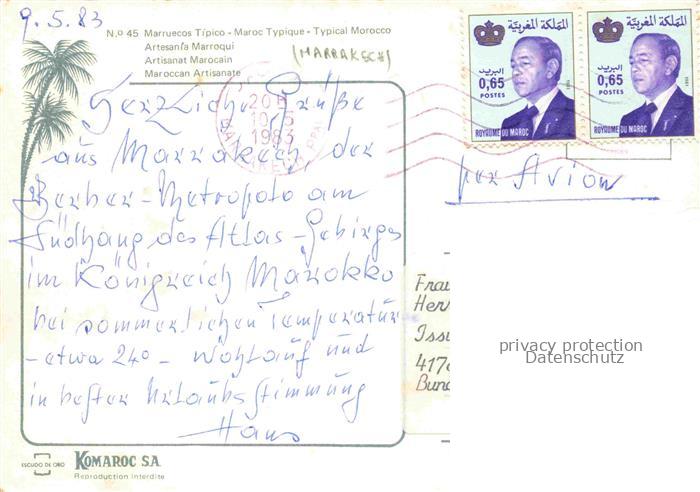 9.5.83
N.º 45 Marruecos Típico - Maroc Typique - Typical Morocco
Artesanía Marroqui
Artisanat Marocain
Maroccan Artisanate
(MARRAKECH)
Herzliche Grüße
aus Marrakech, der
Berber-Metropole am
Südhang des Atlas-Gebirges
im Königreich Marokko
bei sommerlichen Temperatür
-etwa 24°- wohlauf und
in bester Urlaubsstimmung
Hans
المملكة المغربية
البريد
0,65
POSTES
1981
ROYAUME DU MAROC
المملكة المغربية
البريد
0,65
POSTES
1981
ROYAUME DU MAROC
20H
10-5
1983
per Avion
Frau
Herr
Issu
417
Bund
privacy protection
Datenschutz
ESCUDO DE ORO
KOMAROC S.A.
Reproduction Interdite